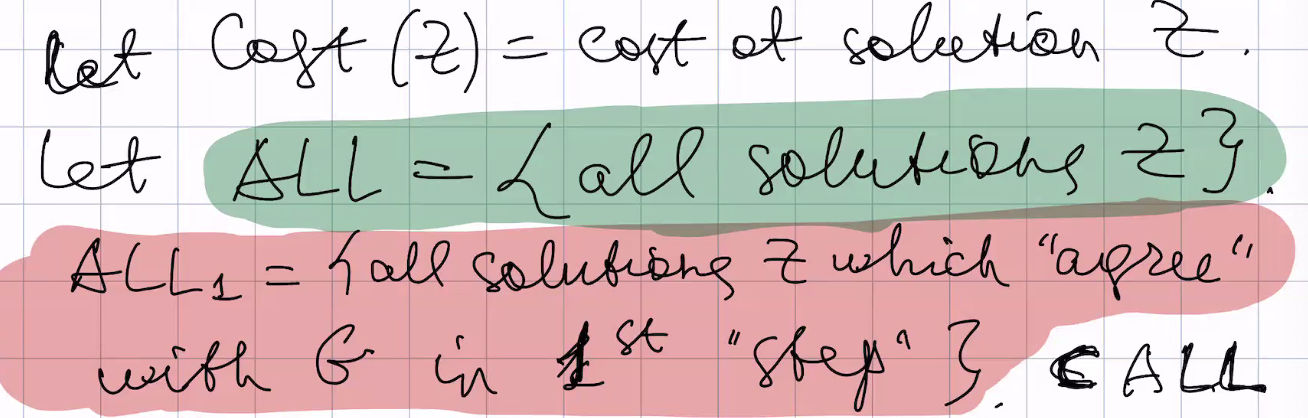 Let Cost (Z) = cost of solution Z.
Let ALL = {all solutions Z}.
ALL₁ = {all solutions Z which "agree"
with G in 1st "step"}. ⊂ ALL